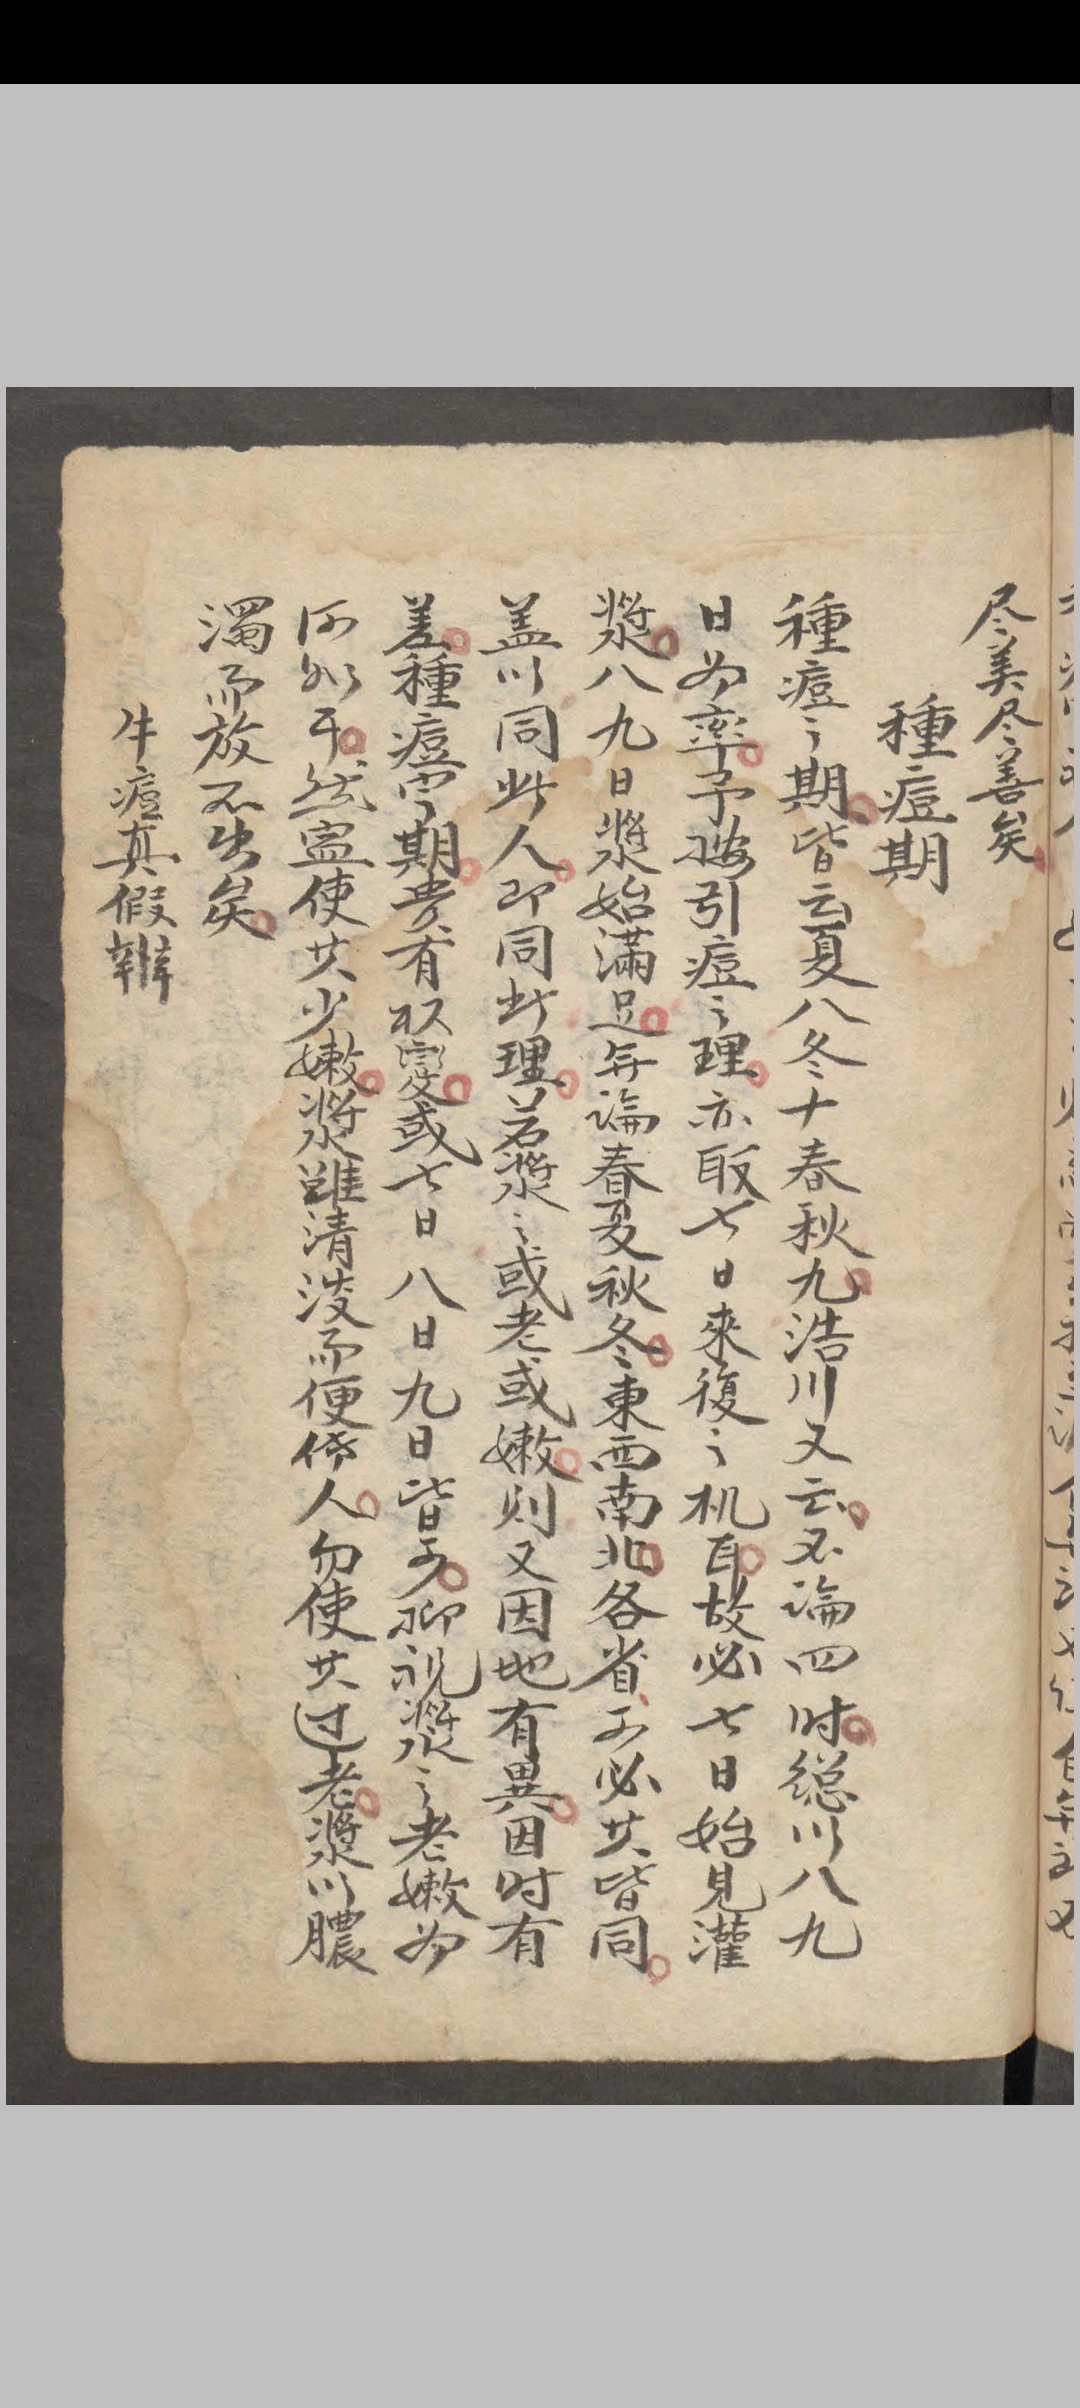 尽美尽善矣
種痘期
種痘之期皆云夏八冬十春秋九浩川又云不論四时總以八九
日为率予按引痘之理亦取七日來復之机耳故必七日始見灌
漿八九日漿始滿足年論春夏秋冬東西南北各省不必其皆同
盖以同此人即同此理若漿之或老或嫩则又因地有異因时有
差種痘期贵有权變或七日八日九日皆可抑视漿之老嫩为
何如耳然寍使其少嫩漿雖清淡而便传人勿使其过老漿以膿
濁而放不出矣
牛痘真假辨